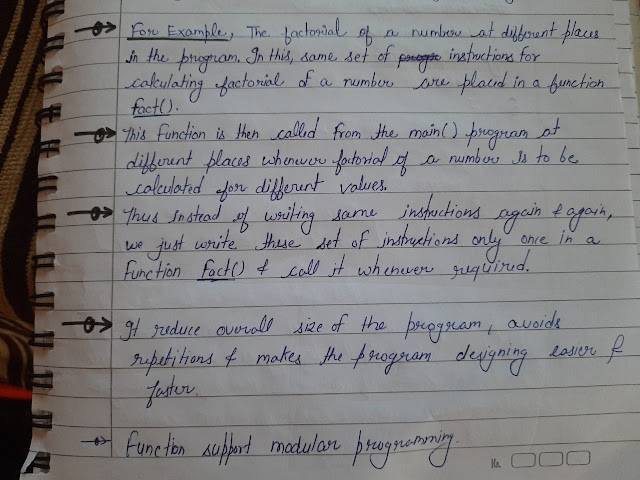 For Example, The factorial of a number at different places
in the program. In this, same set of instructions for
calculating factorial of a number are placed in a function
fact().
This function is then called from the main() program at
different places whenever factorial of a number is to be
calculated for different values.
Thus instead of writing same instructions again & again,
we just write these set of instructions only once in a
function fact() & call it whenever required.
It reduce overall size of the program, avoids
repetitions & makes the program designing easier &
faster.
Function support modular programming.